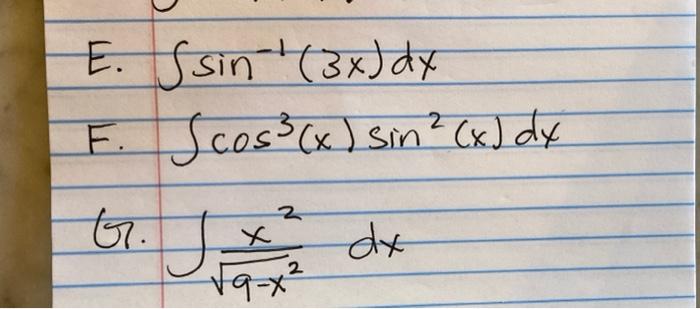 E. ∫sin⁻¹(3x)dx
F. ∫cos³(x) sin²(x) dx
G. ∫ x²/√(9-x²) dx